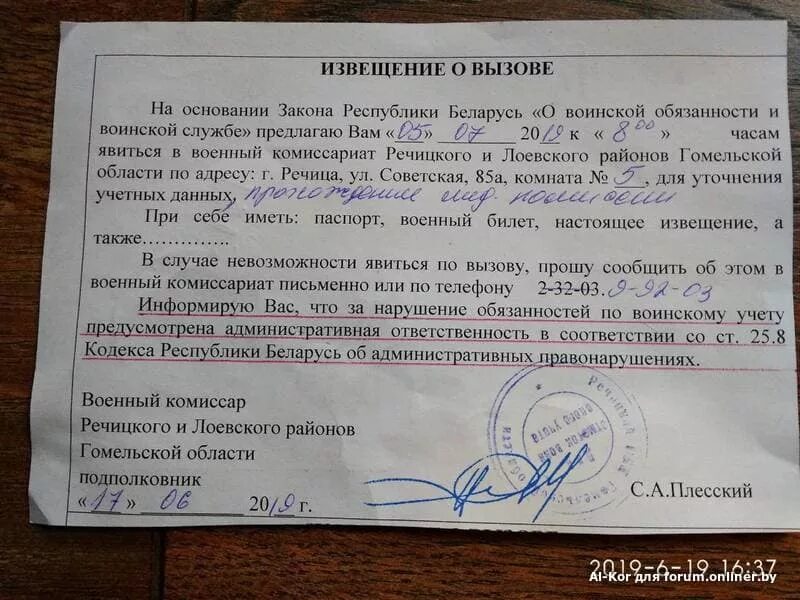 ИЗВЕЩЕНИЕ О ВЫЗОВЕ
На основании Закона Республики Беларусь «О воинской обязанности и
воинской службе» предлагаю Вам «05» 07 2019 к « 8 00 » часам
явиться в военный комиссариат Речицкого и Лоевского районов Гомельской
области по адресу: г. Речица, ул. Советская, 85а, комната № 5, для уточнения
учетных данных, прохождение мед. комиссии
При себе иметь: паспорт, военный билет, настоящее извещение, а
также………….
В случае невозможности явиться по вызову, прошу сообщить об этом в
военный комиссариат письменно или по телефону 2-32-03. 9-92-03
Информирую Вас, что за нарушение обязанностей по воинскому учету
предусмотрена административная ответственность в соответствии со ст. 25.8
Кодекса Республики Беларусь об административных правонарушениях.
Военный комиссар
Речицкого и Лоевского районов
Гомельской области
подполковник
«17» 06 2019 г.
С.А.Плесский
2019-6-19 16:37
Al-Kor для forum.onliner.by